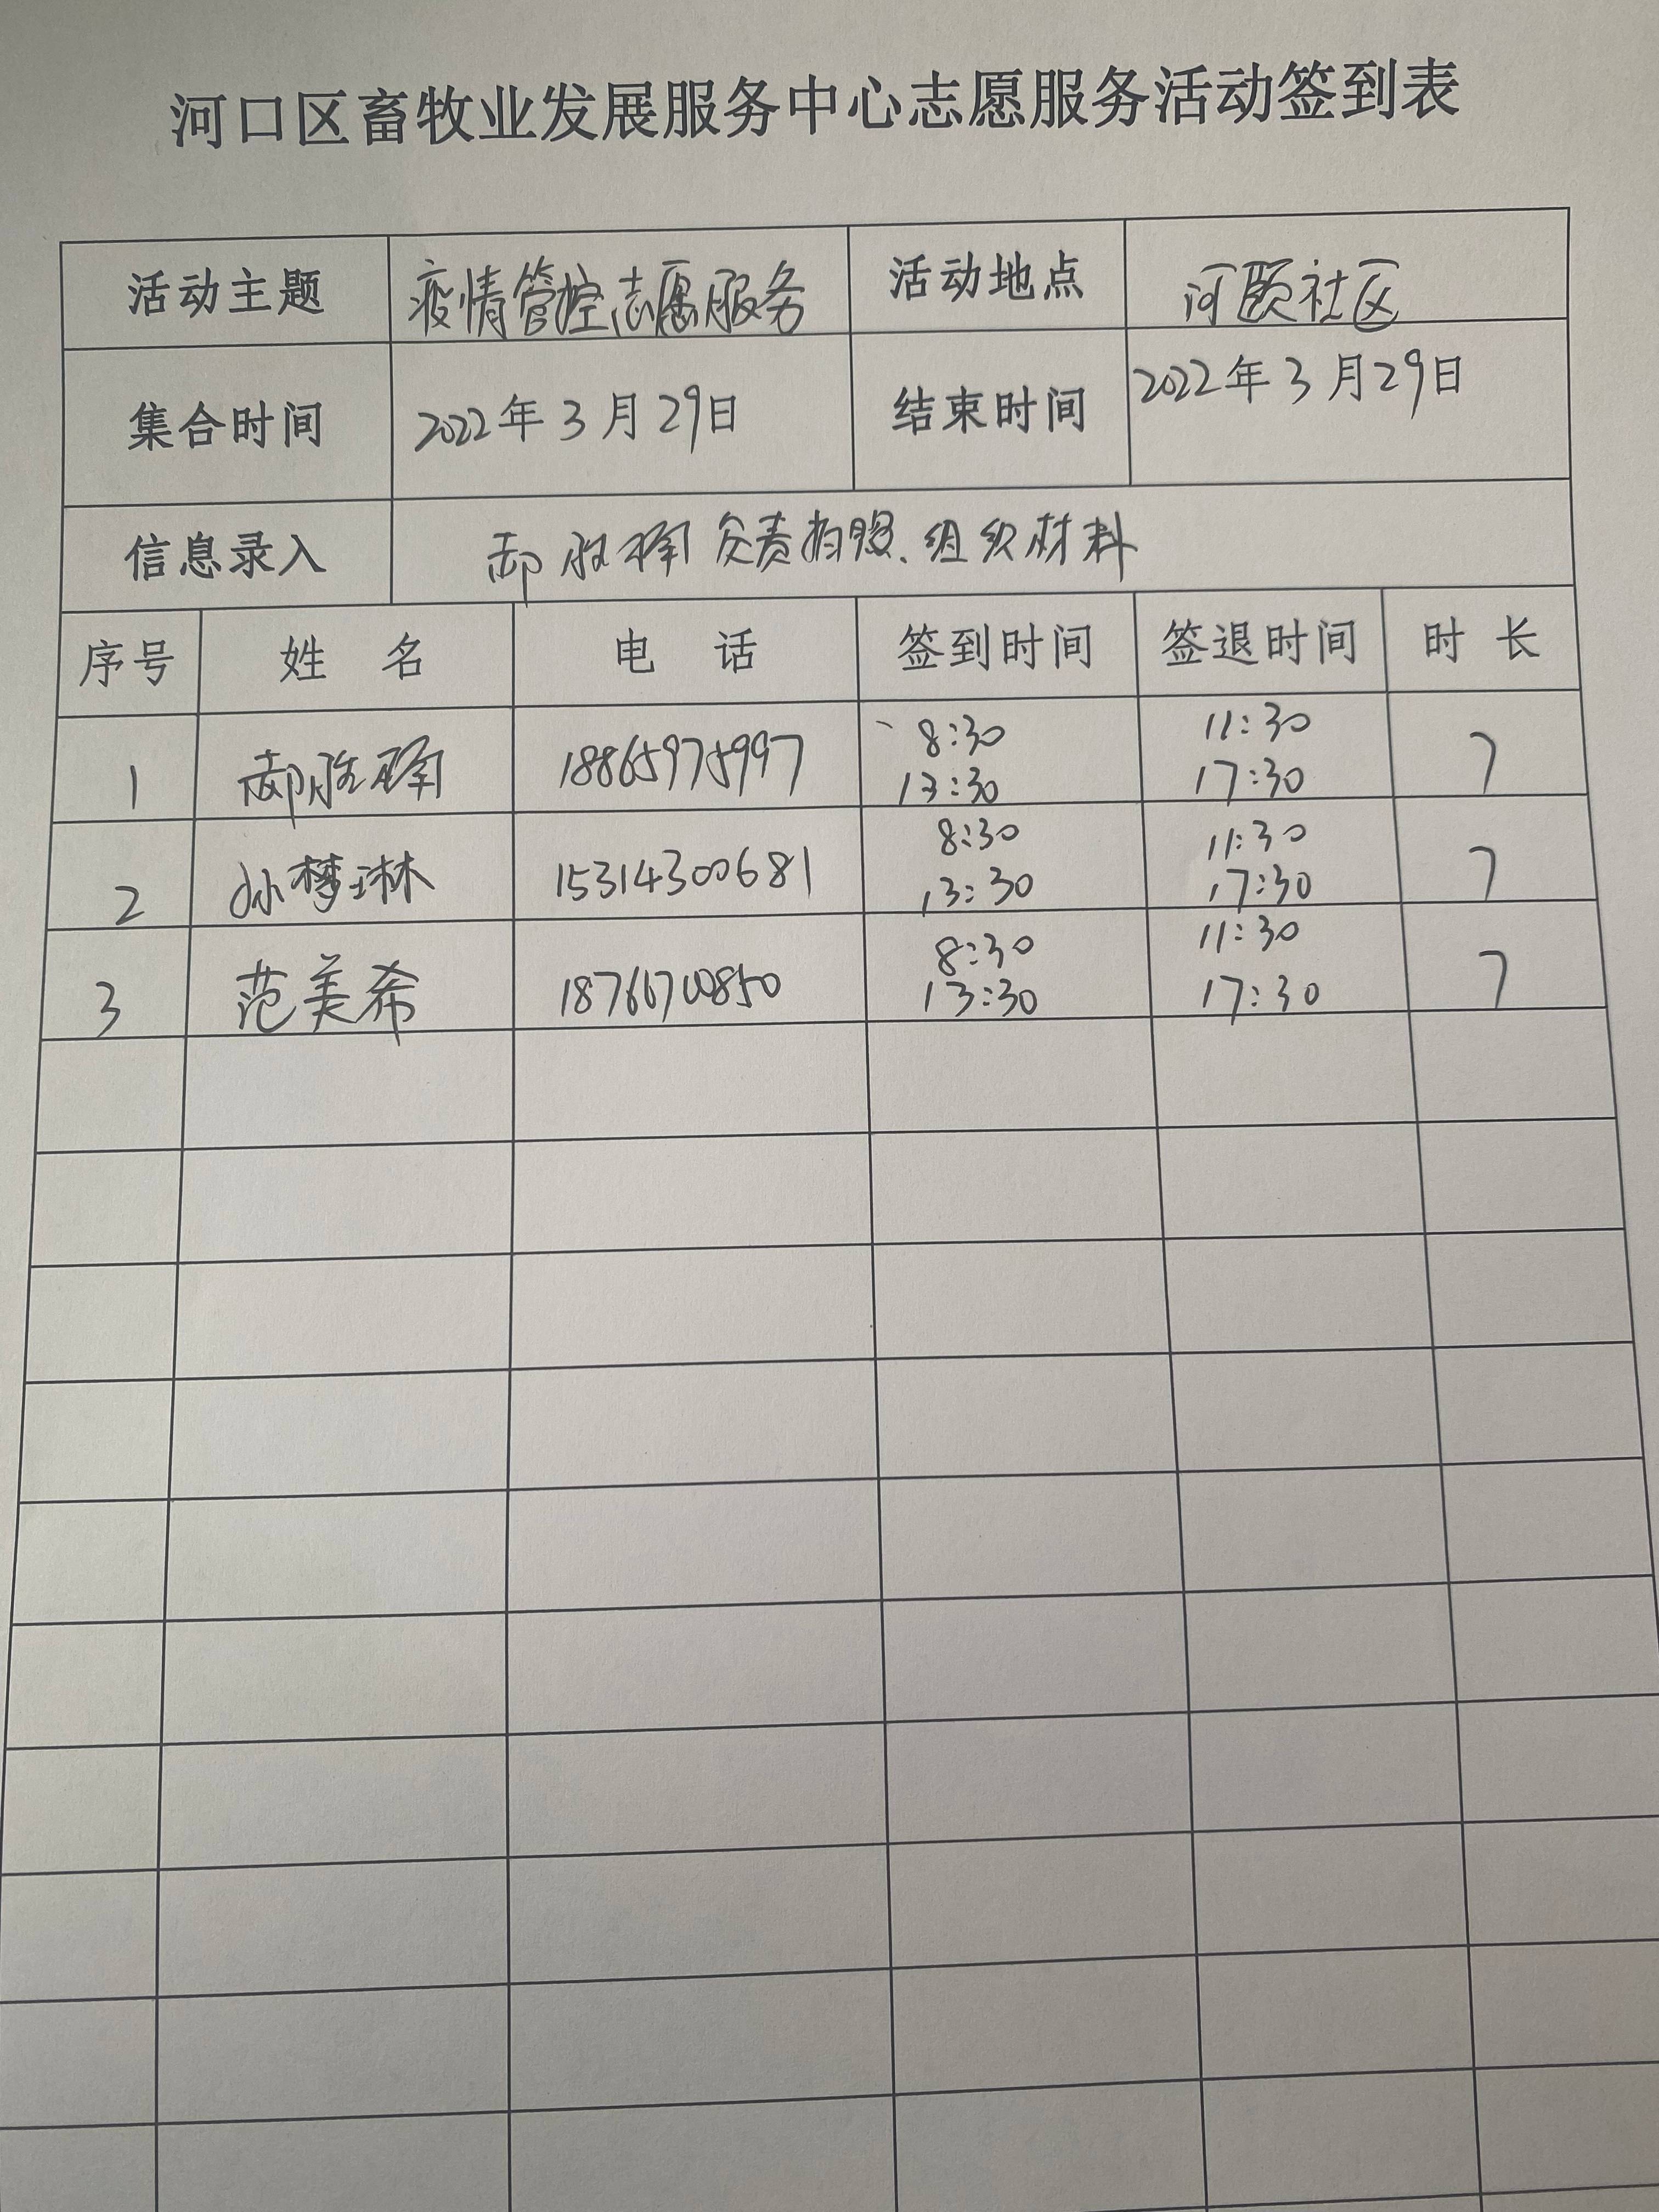 河口区畜牧业发展服务中心志愿服务活动签到表
活动主题 疫情管控志愿服务 活动地点 河颐社区
集合时间 2022年3月29日 结束时间 2022年3月29日
信息录入 郝胜楠负责拍照、组织材料
序号 姓 名 电 话 签到时间 签退时间 时 长
1 郝胜楠 18865975997 8:30 11:30 7
13:30 17:30
2 孙梦琳 15314300681 8:30 11:30 7
13:30 17:30
3 范美希 8:30 11:30 7
13:30 17:30